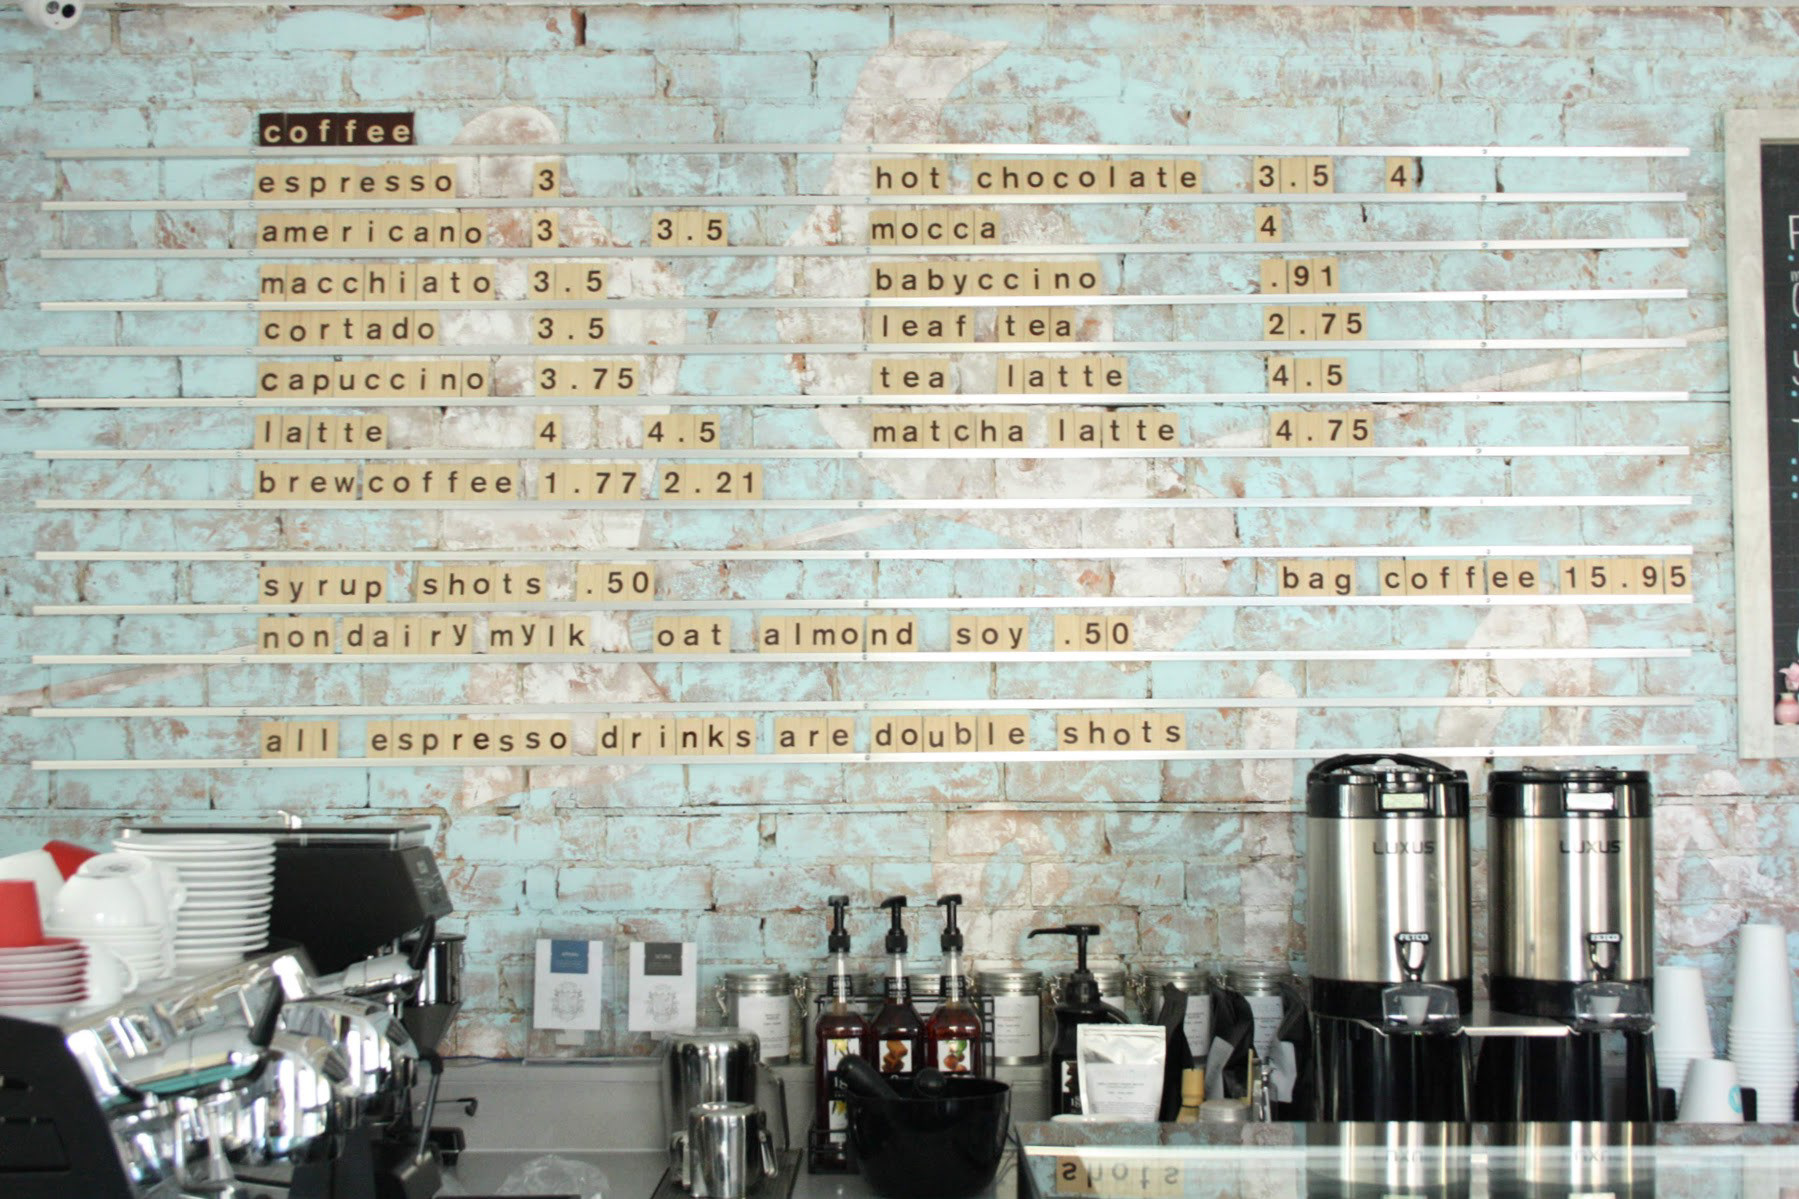 coffee
espresso 3
americano 3 3.5
macchiato 3.5
cortado 3.5
capuccino 3.75
latte 4 4.5
brewcoffee 1.77 2.21
hot chocolate 3.5 4
mocca 4
babyccino .91
leaf tea 2.75
tea latte 4.5
matcha latte 4.75
syrup shots .50
bag coffee 15.95
nondairy mylk oat almond soy .50
all espresso drinks are double shots
LUXUS
LUXUS
FETCO
FETCO
shots